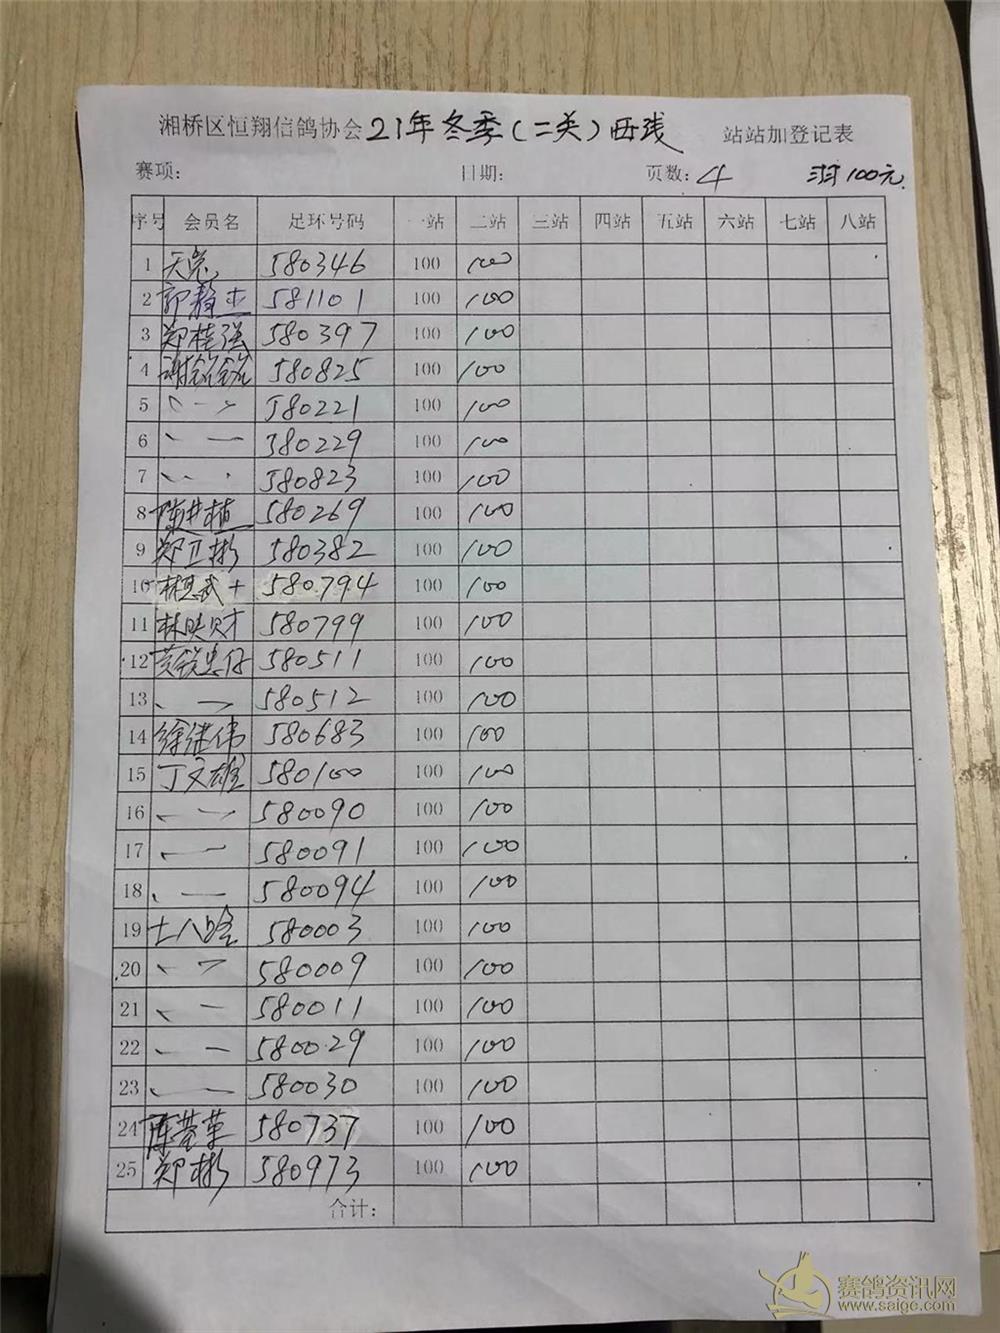 湘桥区恒翔信鸽协会 21年冬季(二关) 站站加登记表
赛项: 日期: 页数: 4 羽100元
序号 会员名 足环号码 一站 二站 三站 四站 五站 六站 七站 八站
1 580346 100 100
2 581101 100 100
3 郑桂强 580397 100 100
4 580825 100 100
5 580221 100 100
6 580229 100 100
7 580823 100 100
8 580269 100 100
9 郑卫彬 580382 100 100
10 580794 100 100
11 林映财 580799 100 100
12 580511 100 100
13 580512 100 100
14 徐继伟 580683 100 100
15 丁文雄 580100 100 100
16 580090 100 100
17 580091 100 100
18 580094 100 100
19 580003 100 100
20 580009 100 100
21 580011 100 100
22 580029 100 100
23 580030 100 100
24 580737 100 100
25 郑彬 580973 100 100
合计:
赛鸽资讯网
www.saige.com